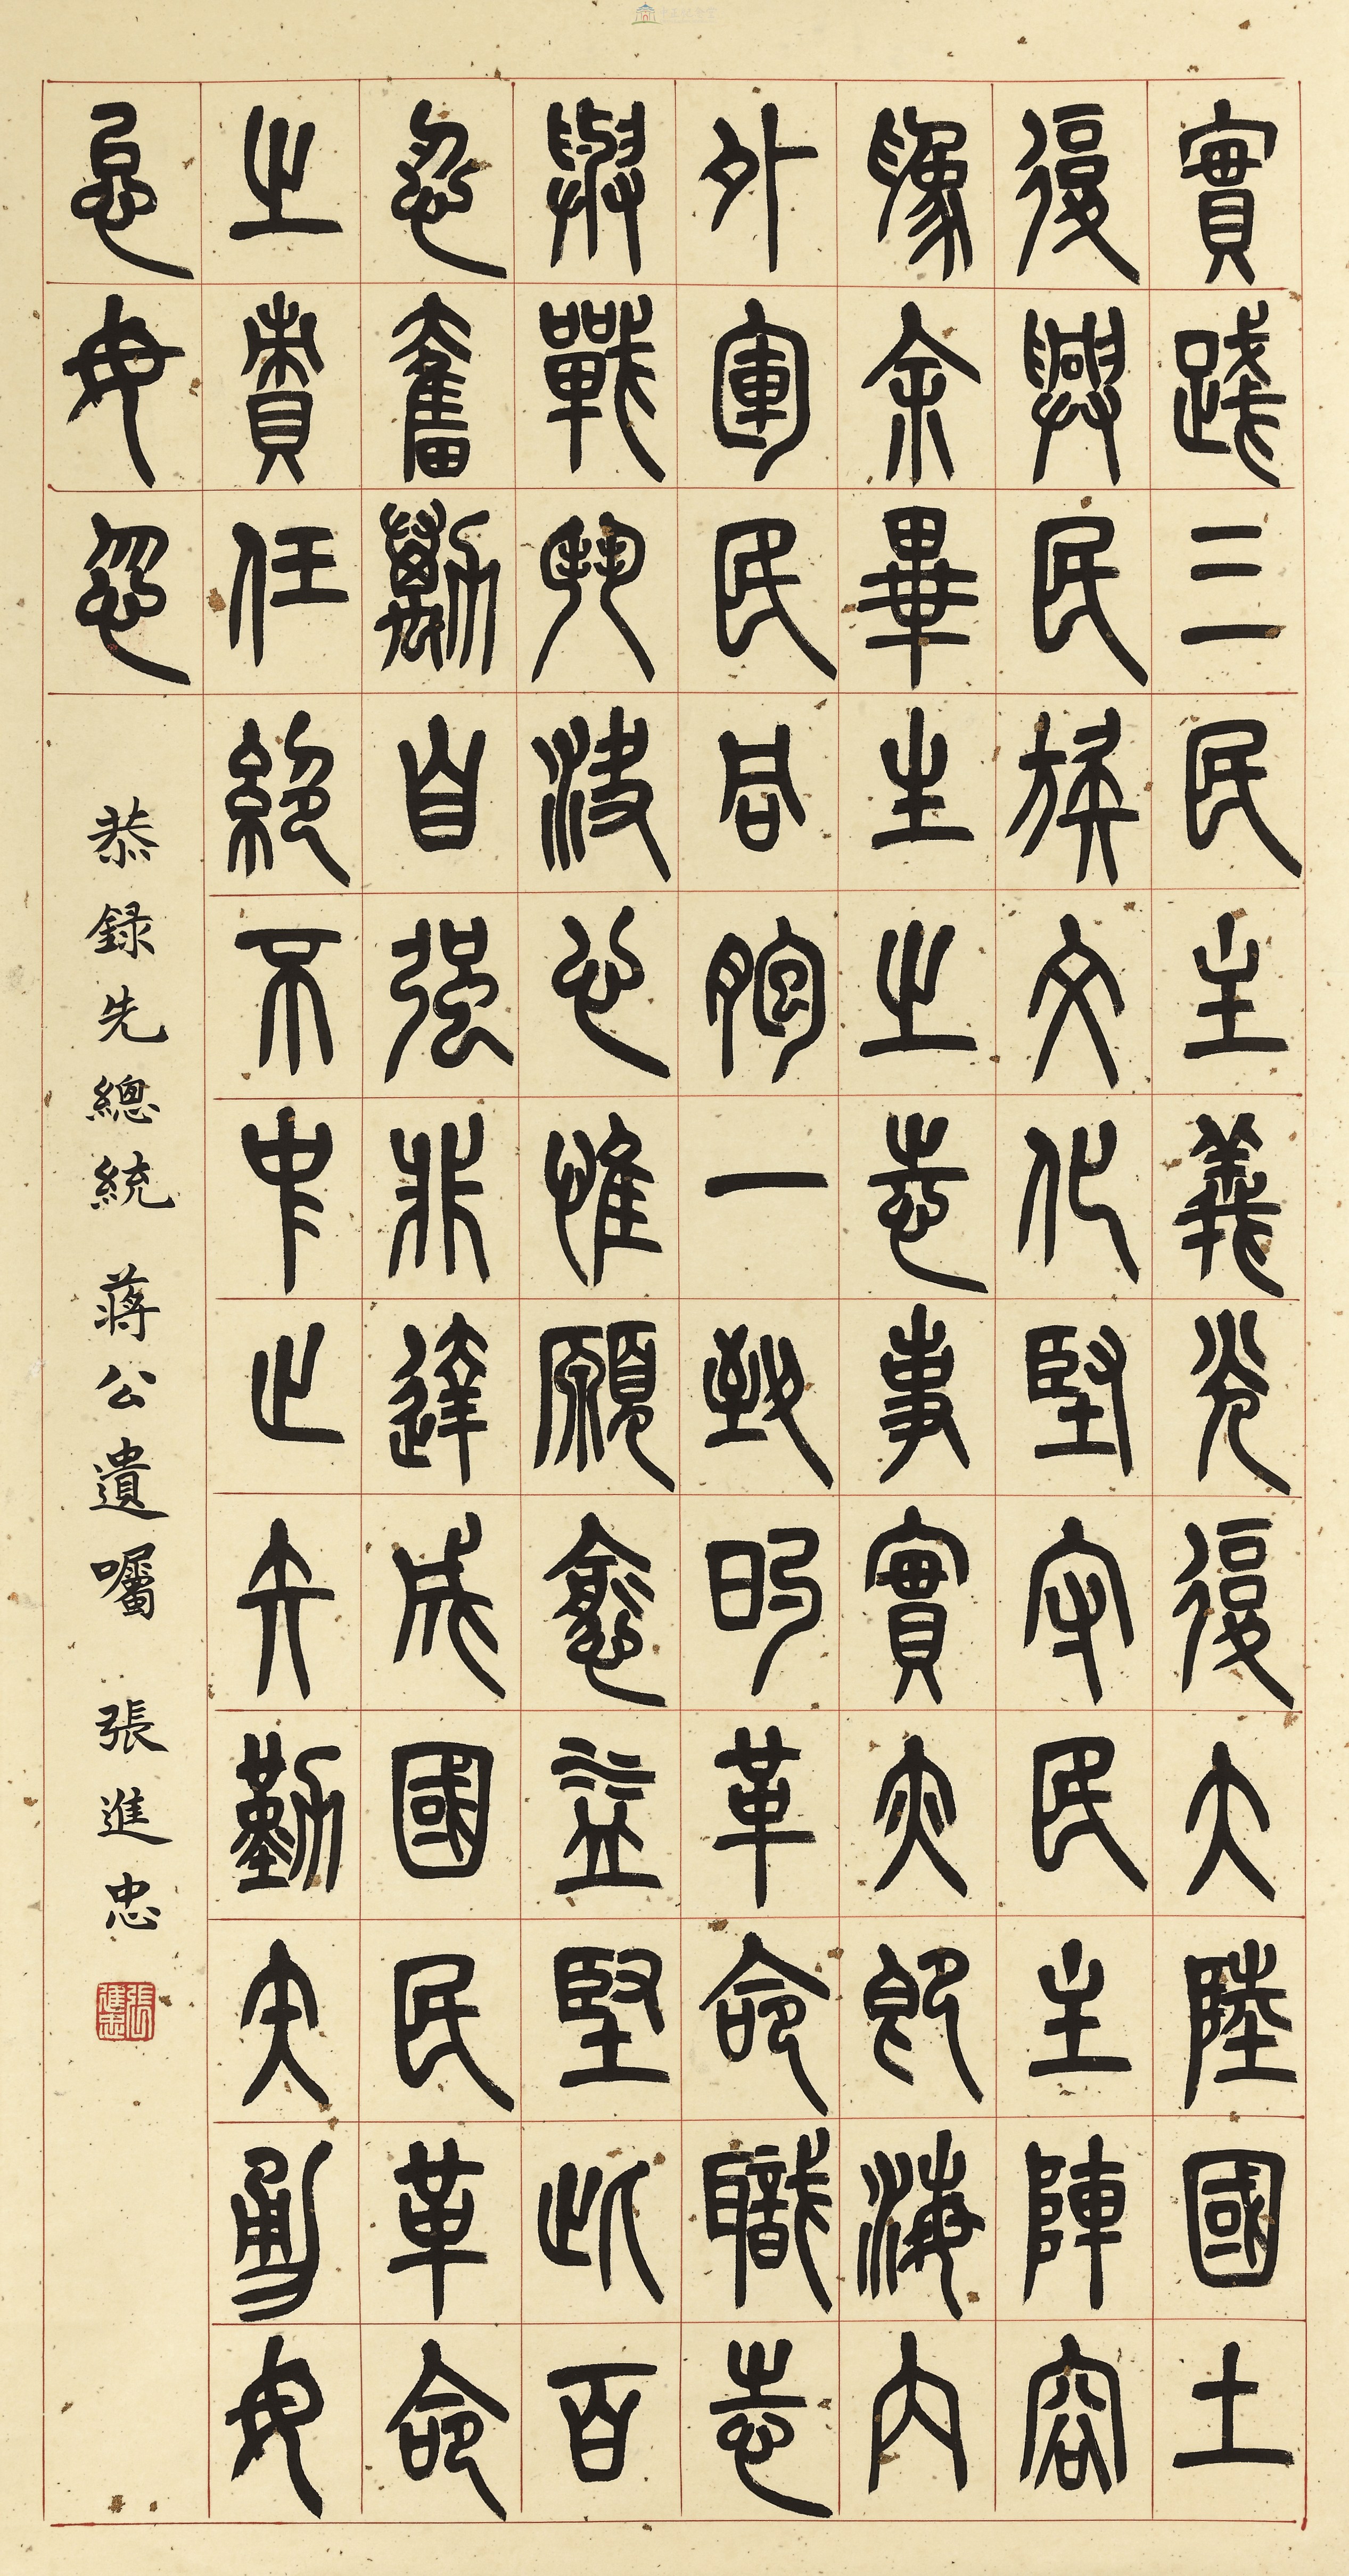 實踐三民主義光復大陸國土
復興民族文化堅守民主陣容
豫余畢生之志事實亦即海內
外軍民同胞一致的革命職志
與戰鬥決心惟願愈益堅此百
忍奮勵自強非達成國民革命
之責任絕不中止矢勤矢勇毋
怠毋忽
恭錄先總統 蔣公遺囑 張進忠
張進忠